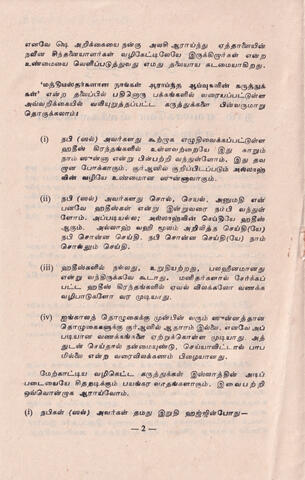 எனவே ஷெ அறிக்கையை நன்கு அலசி ஆராய்ந்து ஏத்தாளையின்
நவீன சிந்தனையாளர்கள் வழிகேட்டிலேயே இருக்கிறார்கள் என்ற
உண்மையை வெளிப்படுத்துவது எமது தலையாய கடமையாகிறது.
'மத்திமஸ்தர்களான நாங்கள் ஆராய்ந்த ஆய்வுகளின் கருத்துக்
கள்' என்ற தலைப்பில் பதினொரு பக்கங்களில் வரையப்பட்டுள்ள
அவ்வறிக்கையில் வலியுறுத்தப்பட்ட கருத்துக்களை பின்வருமாறு
தொகுக்கலாம்!
(i) நபி (ஸல்) அவர்களது கூற்றாக எழுதிவைக்கப்பட்டுள்ள
ஹதீஸ் கிரந்தங்களில் உள்ளவற்றையே இது காறும்
நாம் ஸுன்னா என்று பின்பற்றி வந்துள்ளோம். இது தவ
றான போக்காகும். குர்ஆனில் குறிப்பிடப்படும் அல்லாஹ்
வின் வழியே உண்மையான ஸுன்னாவாகும்.
(ii) நபி (ஸல்) அவர்களது சொல், செயல், அனுமதி என்
பனவே ஹதீஸ்கள் என்று இன்றுவரை நம்பி வந்துள்
ளோம். அப்படியல்ல; அல்லாஹ்வின் செய்தியே ஹதீஸ்
ஆகும். அல்லாஹ் வஹீ மூலம் அறிவித்த செய்தி(யே)
நபி சொன்ன செய்தி. நபி சொன்ன செய்தி(யே) நாம்
சொல்லும் செய்தி.
(iii) ஹதீஸ்களில் நல்லது, உறுதியற்றது, பலஹீனமானது
என்று வந்திருக்கவே கூடாது. மனிதர்களால் சேர்க்கப்
பட்ட ஹதீஸ் கிரந்தங்களில் ஏவல் விலக்கலோ வணக்க
வழிபாடுகளோ வர முடியாது.
(iv) ஐங்காலத் தொழுகைக்கு முன்பின் வரும் ஸுன்னத்தான
தொழுகைகளுக்கு குர்ஆனில் ஆதாரம் இல்லை. எனவே அப்
படியான வணக்கங்களை ஏற்றுக்கொள்ள முடியாது. அத்
துடன் செய்தால் நன்மையுண்டு, செய்யாவிட்டால் பாப
மில்லை என்ற வரைவிலக்கணம் பிழையானது.
மேற்காட்டிய வழிகெட்ட கருத்துக்கள் இஸ்லாத்தின் அடிப்
படையையே சிதறடிக்கும் பயங்கர வாதங்களாகும். இவைபற்றி
ஒவ்வொன்றாக ஆராய்வோம்.
(i) நபிகள் (ஸல்) அவர்கள் தமது இறுதி ஹஜ்ஜின்போது—
— 2 —